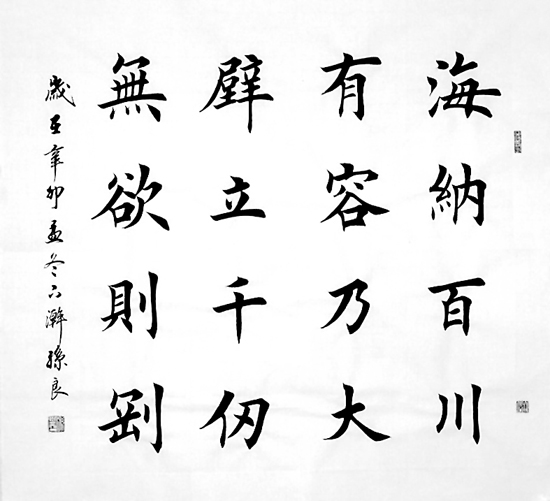 海納百川
有容乃大
壁立千仞
無欲則剛
歲在辛卯孟冬下澣孫良